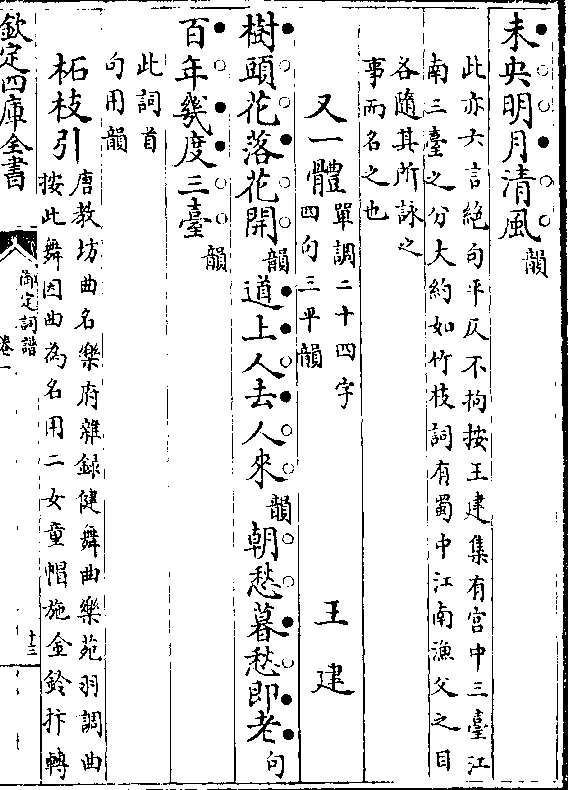 未央明月清風韻
此亦六言絶句平仄不拘按王建集有宫中三臺江
南三臺之分大約如竹枝詞有蜀中江南漁父之目
各隨其所詠之
事而名之也
又一體單調二十四字
四句三平韻
王建
樹頭花落花開韻道上人去人來韻朝愁暮愁即老句
百年幾度三臺韻
此詞首
句用韻
柘枝引唐教坊曲名樂府雜録健舞曲樂苑羽調曲
按此舞因曲為名用二女童帽施金鈴抃轉
欽定四庫全書
御定詞譜
卷一
十三